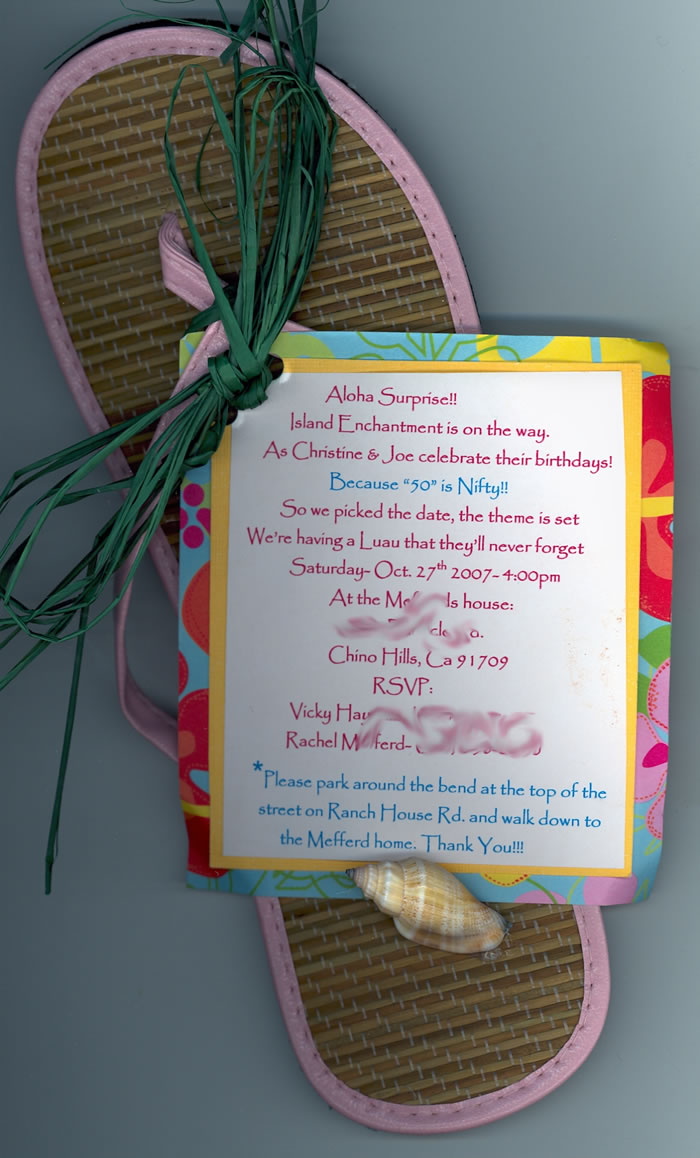 Aloha Surprise!!
Island Enchantment is on the way.
As Christine & Joe celebrate their birthdays!
Because “50” is Nifty!!
So we picked the date, the theme is set
We're having a Luau that they'll never forget
Saturday- Oct. 27th 2007- 4:00pm
At the house:
Chino Hills, Ca 91709
RSVP:
Vicky
Rachel
*Please park around the bend at the top of the
street on Ranch House Rd. and walk down to
the Mefferd home. Thank You!!!